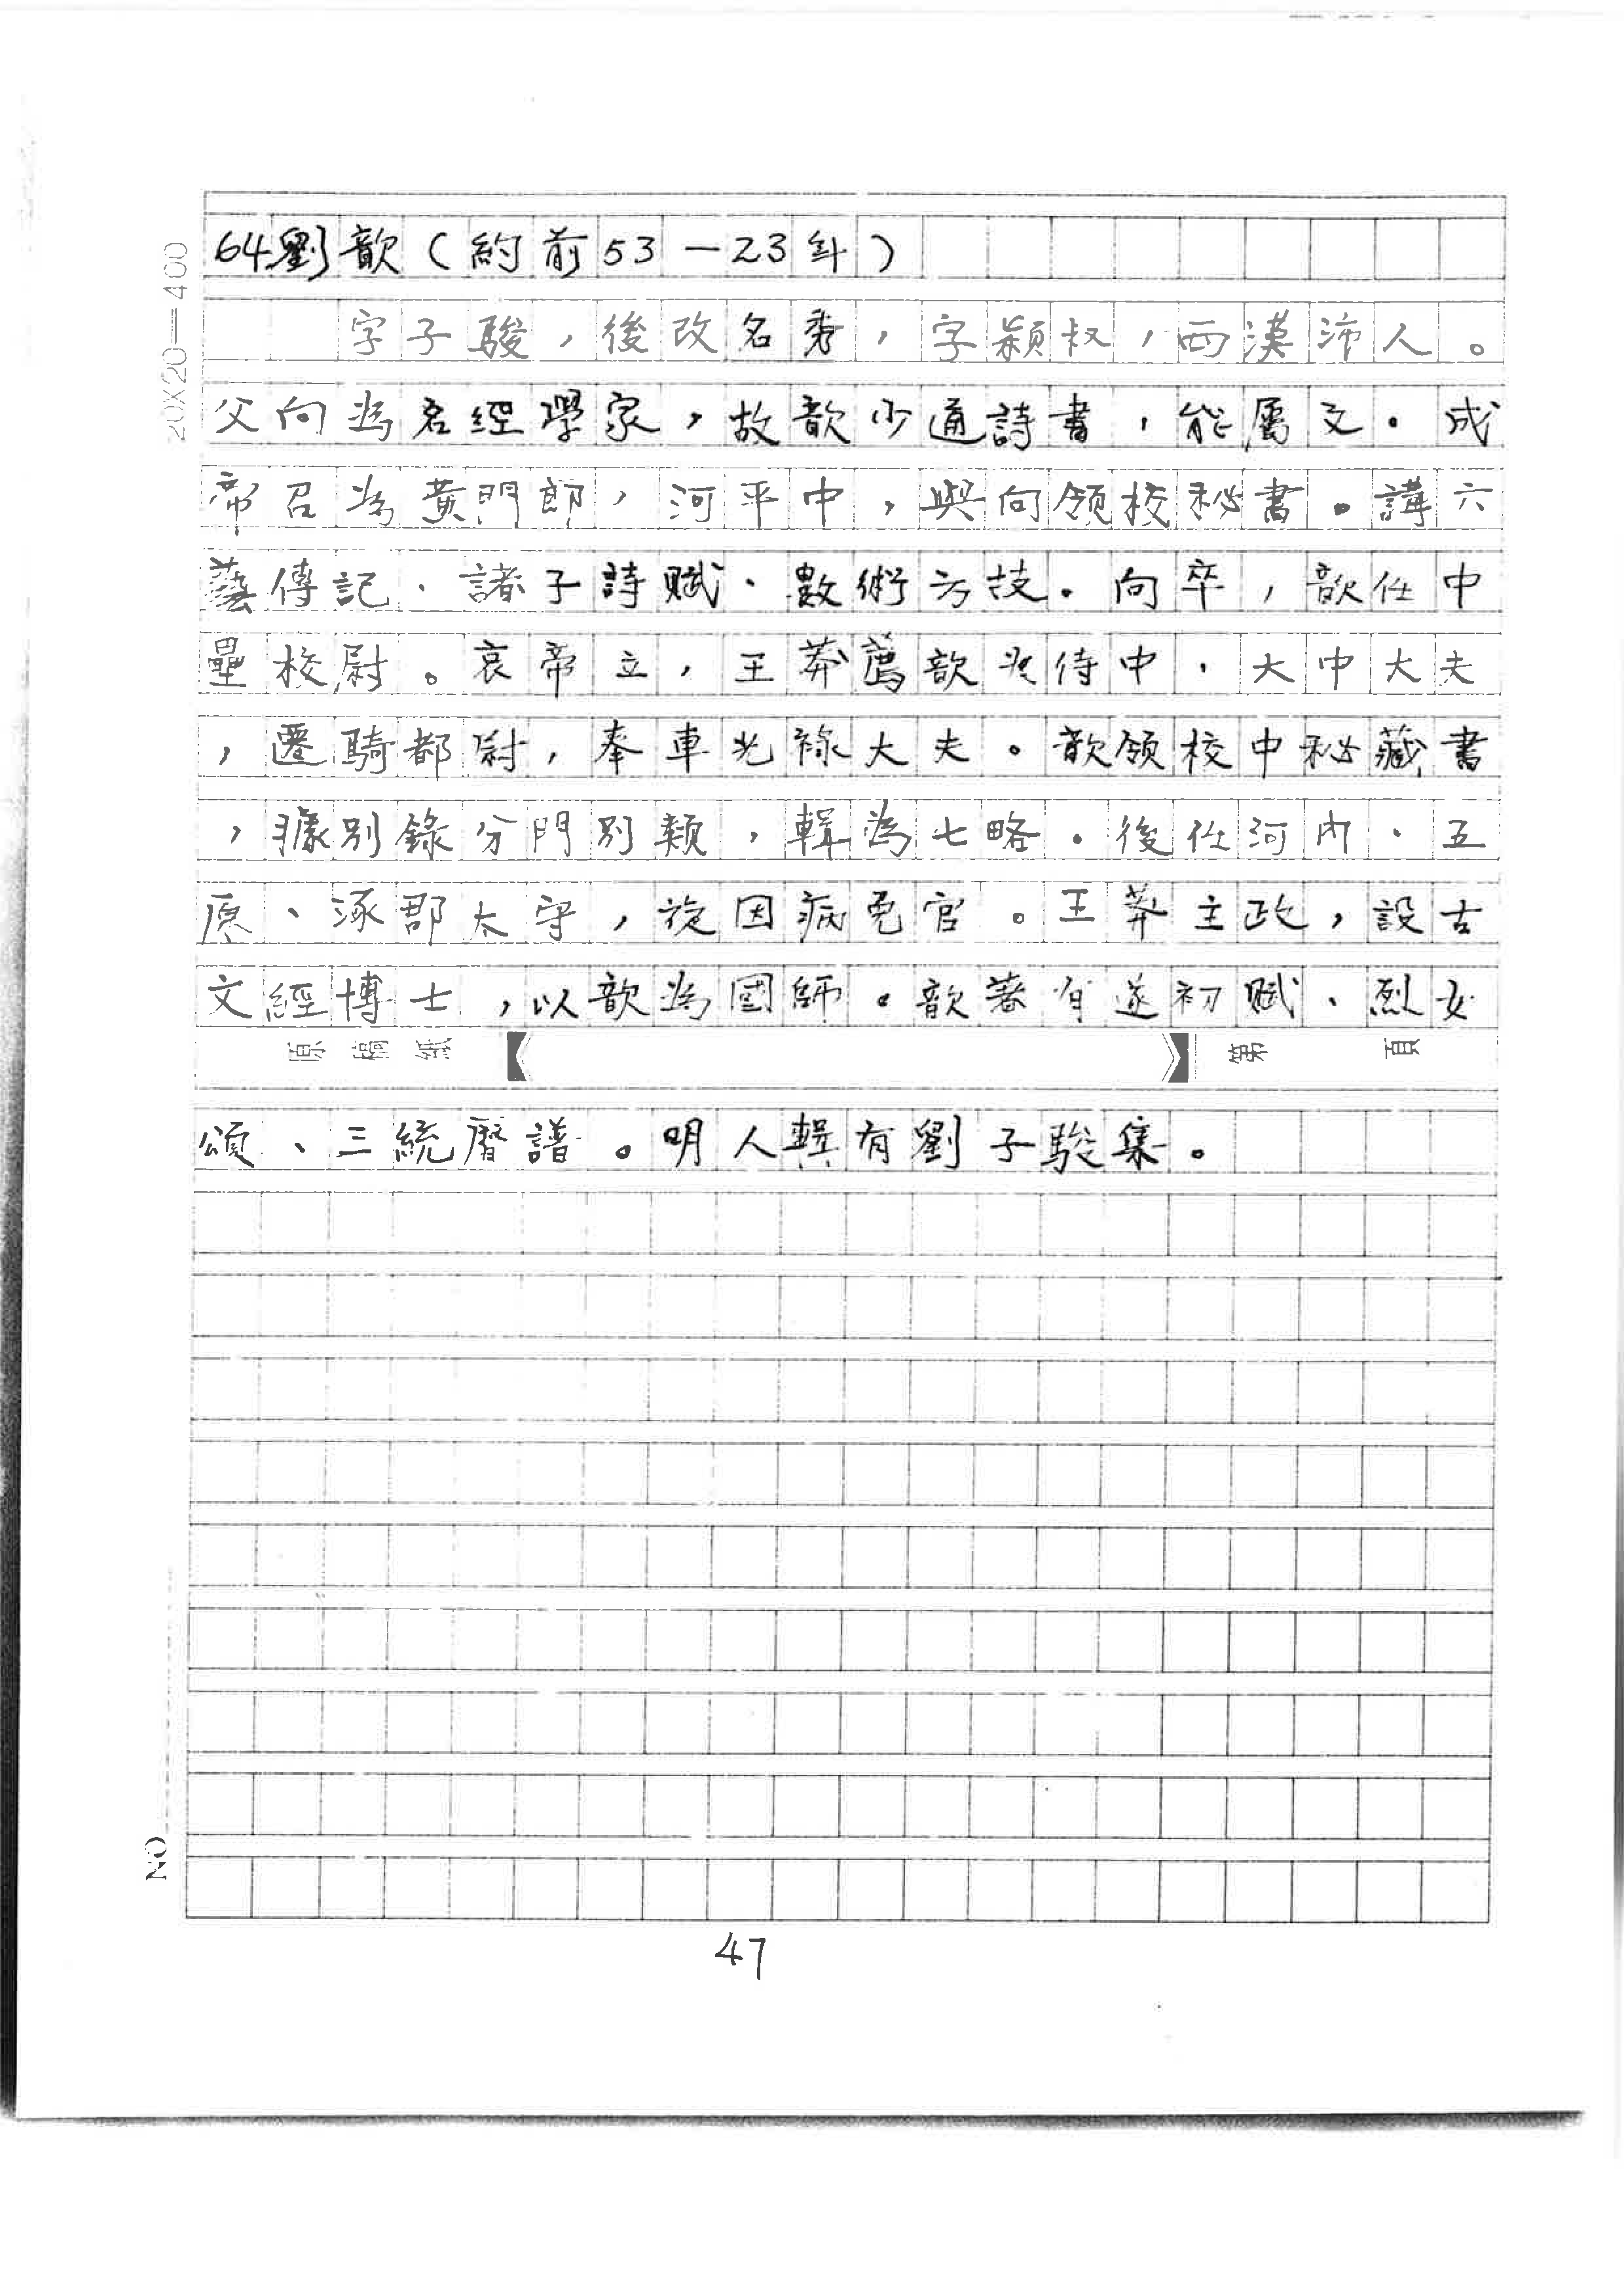 64劉歆(約前53一23年)
字子駿,後改名秀,字穎叔,西漢沛人。
父向為名經學家,故歆少通詩書,能屬文。成
帝召為黃門郎,河平中,與向領校秘書。講六
藝傳記、諸子詩賦、數術方技。向卒,歆任中
壘校尉。哀帝立,王莽薦歆為侍中、大中大夫
,遷騎都尉,奉車光祿大夫。歆領校中秘藏書
,據別錄分門別類,輯為七略。後任河內、五
原、涿郡太守,旋因病免官。王莽主政,設古
文經博士,以歆為國師。歆著有遂初賦、烈女
原稿紙 第 頁
頌、三統曆譜。明人輯有劉子駿集。
20X20—400
NO
47